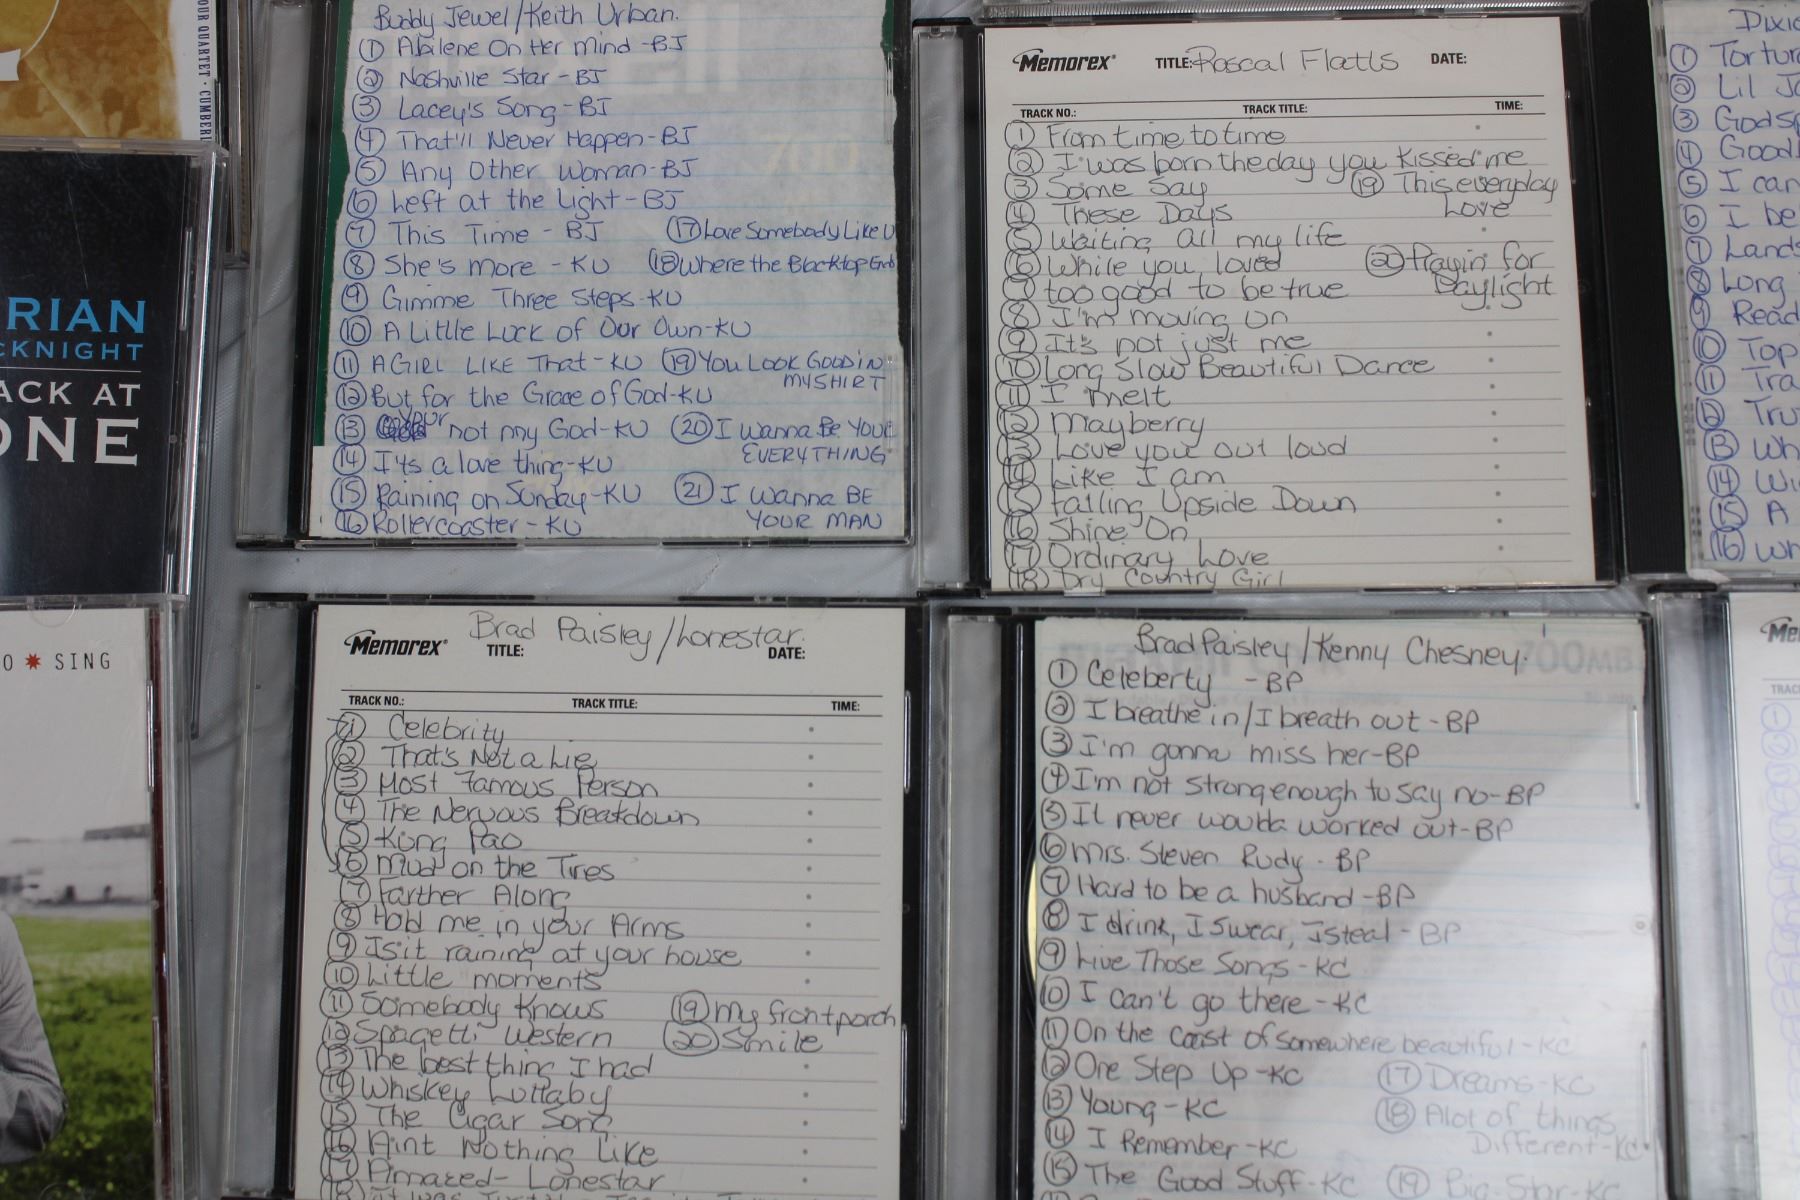 OUR QUARTET · CUMBERL
RIAN
CKNIGHT
ACK AT
ONE
O ✷ SING
Buddy Jewel/Keith Urban.
① Abilene On Her Mind - BJ
② Nashville Star - BJ
③ Lacey's Song - BJ
④ That'll Never Happen - BJ
⑤ Any Other Woman - BJ
⑥ Left at the Light - BJ
⑦ This Time - BJ
⑧ She's more - KU
⑨ Gimme Three Steps - KU
⑩ A Little Luck of Our Own - KU
⑪ A GIRL LIKE That - KU
⑫ But for the Grace of God - KU
⑬ your not my God - KU
⑭ It's a love thing - KU
⑮ Raining on Sunday - KU
⑯ Rollercoaster - KU
⑰ Love Somebody Like U
⑱ Where the Blacktop Ends
⑲ YOU LOOK GOOD IN
MY SHIRT
⑳ I WANNA BE YOUR
EVERYTHING
㉑ I WANNA BE
YOUR MAN
Memorex TITLE: Rascal Flatts DATE:
TRACK NO.: TRACK TITLE: TIME:
① From time to time
② I was born the day you kissed me
③ Some Say
④ These Days
⑤ Waiting all my life
⑥ While you loved
⑦ too good to be true
⑧ I'm moving on
⑨ It's not just me
⑩ Long Slow Beautiful Dance
⑪ I melt
⑫ Mayberry
⑬ Love you out loud
⑭ Like I am
⑮ Falling Upside Down
⑯ Shine On
⑰ Ordinary Love
⑱ Dry Country Girl
⑲ This everyday
Love
⑳ Prayin' for
Daylight
Dixie
① Tortur
② Lil Ja
③ Godsp
④ Good
⑤ I can
⑥ I be
⑦ Lands
⑧ Long
⑨ Read
⑩ Top
⑪ Tra
⑫ Tru
⑬ Wh
⑭ Wi
⑮ A
⑯ Wh
Memorex TITLE: Brad Paisley/Lonestar. DATE:
TRACK NO.: TRACK TITLE: TIME:
① Celebrity
② That's Not a Lie
③ Most Famous Person
④ The Nervous Breakdown
⑤ Kung Pao
⑥ Mud on the Tires
⑦ Farther Along
⑧ Hold me in your Arms
⑨ Is it raining at your house
⑩ Little moments
⑪ Somebody Knows
⑫ Spagetti Western
⑬ The best thing I had
⑭ Whiskey Lullaby
⑮ The Cigar Song
⑯ Aint Nothing Like
⑰ Amazed - Lonestar
⑲ my front porch
⑳ Smile
Brad Paisley/Kenny Chesney.
700MB
① Celeberty - BP
② I breathe in/I breath out - BP
③ I'm gonna miss her - BP
④ I'm not strong enough to say no - BP
⑤ It never woulda worked out - BP
⑥ Mrs. Steven Rudy - BP
⑦ Hard to be a husband - BP
⑧ I drink, I swear, I steal - BP
⑨ Live Those Songs - KC
⑩ I can't go there - KC
⑪ On the Coast of somewhere beautiful - KC
⑫ One Step Up - KC
⑬ Young - KC
⑭ I Remember - KC
⑮ The Good Stuff - KC
⑰ Dreams - KC
⑱ Alot of things
Different - KC
⑲ Big Star - KC
Me
TRAC